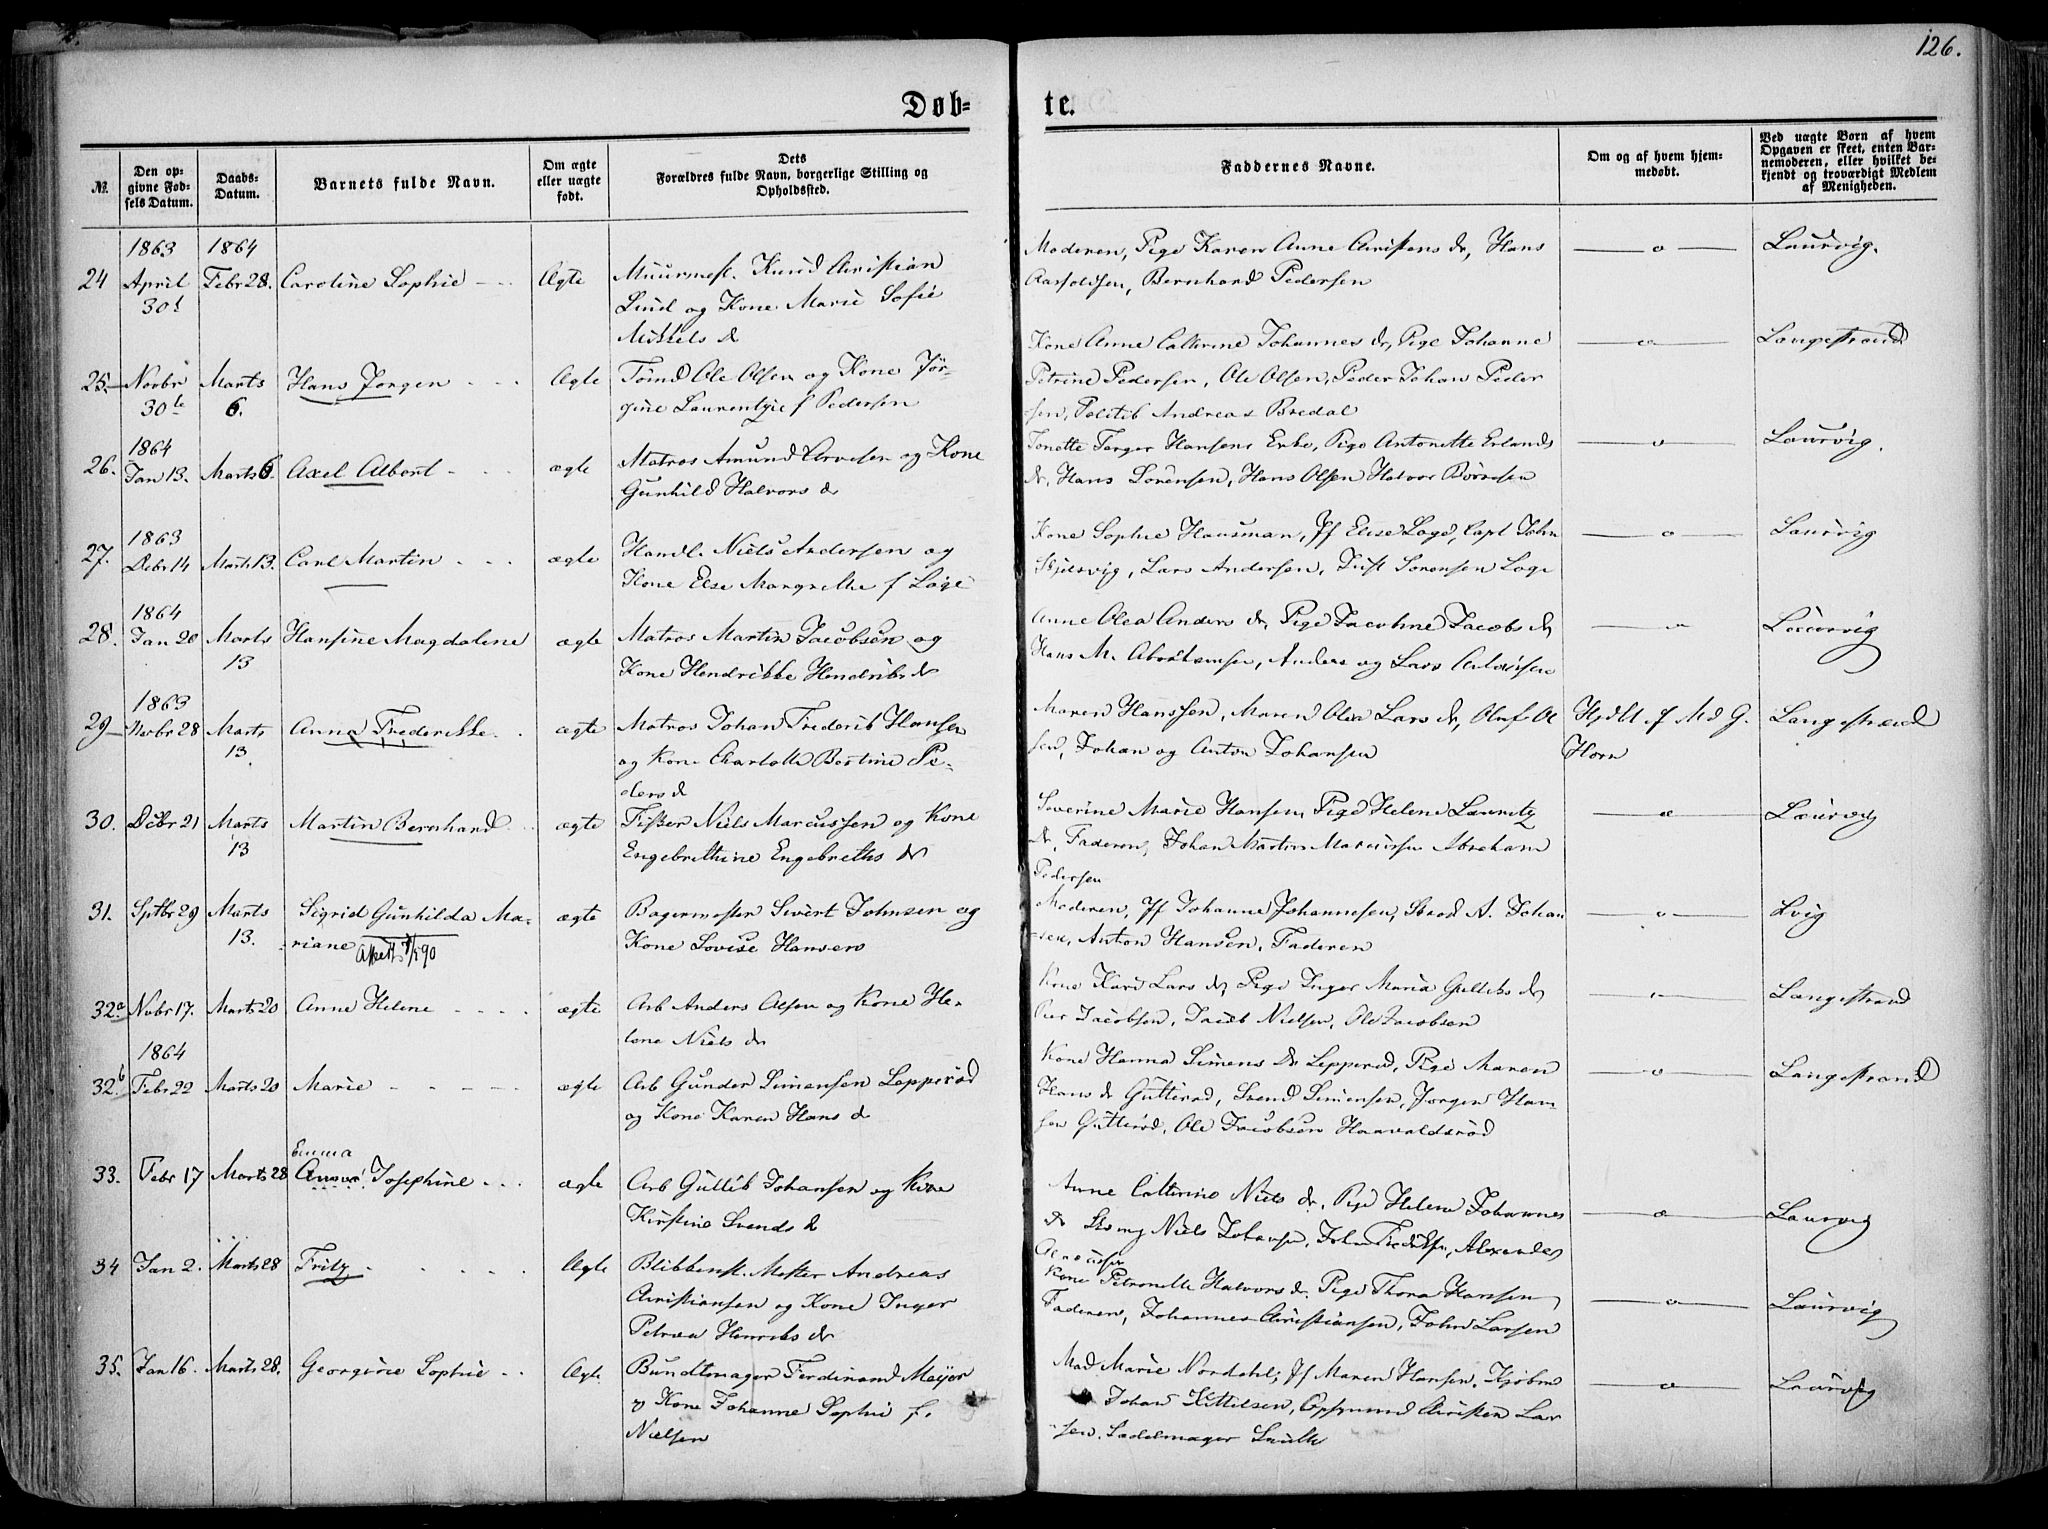 126.
Døb-
te.
№
Den op-
givne Fød-
sels Datum.
Daabs-
Datum.
Barnets fulde Navn.
Om ægte
eller uægte
født.
Dets
Forældres fulde Navn, borgerlige Stilling og
Opholdssted.
Faddernes Navne.
Om og af hvem hjem-
medøbt.
Ved uægte Børn af hvem
Opgaven er skeet, enten Bar-
nemoderen, eller hvilket be-
kjendt og troværdigt Medlem
af Menigheden.
1863 1864
24 April Febr 28. Caroline Sophie - - Ægte
30t
Muurmest. Knud Christian
Lund og Kone Marie Sofie
Mikkels d
Moderen, Pige Karen Anne Christens dr, Hans
Aasoldsen, Bernhard Pedersen
— o — Laurvig.
25. Novbr Marts Hans Jørgen - - - Ægte
30te 6.
Tømd Ole Olsen og Kone Jør-
gine Laurentzie f Pedersen
Kone Anne Cathrine Johannes dr, Pige Johanne
Petrine Pedersen, Ole Olsen, Peder Johan Peder
sen, Politib Andreas Bredal
Langestrand
1864
26. Jan 13. Marts 6. Axel Albert - - - ægte
Matros Amund Arvesen og Kone
Gunhild Halvors d
Tonette Terger Hansens Enke, Pige Antonette Erlands
dr, Hans Sørensen, Hans Olsen Halvor Børresen
— o — Laurvig.
1863
27. Debr 14 Marts 13. Carl Martin - - - ægte
Handl. Niels Andersen og
Kone Else Margrethe f Lage
Kone Sophie Hausman, Jf Elise Lage, Capt John
Skjelsvig, Lars Andersen, Sørensen Lage
— o — Laurvig
1864
28. Jan 20 Marts Hansine Magdalene ægte
13
Matros Martin Jacobsen og
Kone Hendrikke Hendriks d
Anne Olea Anders dr, Pige Jacobine Jacobs d
Hans M. Abrahamsen, Anders og Lars
Laurvig
1863
29 Novbr 28 Marts Anna Frederikke. - ægte
13.
Matros Johan Frederik Hansen
og Kone Charlotte Bertine Pe-
ders d
Maren Hanssen, Maren Olea Lars dr, Oluf Ol
sen, Johan og Anton Johansen
Hjdbt af Md G.
Horn
Langestrand
30. Debr 21 Marts Martin Bernhard - ægte
13
Fisker Niels Marcussen og Kone
Engebrethine Engebreths dr
Severine Marie Hansen, Pige Helene Lauritz
dr, Faderen, Johan Martin Marcussen Abraham
Pedersen
Laurvig
31. Sptbr 29 Marts Sigrid Gunhilda Ma- ægte
13. riane
Bagermester Sivert Johnsen og
Kone Lovise Hansen
Moderen, Jf Johanne Johannesen, A. Johan
sen, Anton Hansen, Faderen
— o — Lvig
32a. Nvbr 17. Marts 20 Anne Helene - - - - ægte
Arb Anders Olsen og Kone He-
lene Niels dr
Kone Kari Lars dr, Pige Inger Maria Gulliks dr
Per Jacobsen, Jacob Nielsen, Ole Jacobsen
Langestrand
1864
32b. Febr 22 Marts 20 Marie - - - - - ægte
Arb Gunder Simensen Lepperød
og Kone Karen Hans d
Kone Hanna Simens Dr Lepperød, Pige Maren
Hans dr Gutterød, Svend Simensen, Jørgen Han-
sen Gutterød, Ole Jacobsen Haavaldsrød
— o — Langestrand
Emma
33. Febr 17 Marts 28 Anna Josephine - - - ægte
Arb Gullik Johansen og Kone
Kirstine Svends d
Anne Cathrine Niels dr, Pige Helene Johannes
dr Niels Johansen, John Fredriksen, Alexander
Laurvig
34 Jan 2. Marts 28 Fritz - - - - - Ægte
Blikkensl. Mester Andreas
Christiansen og Kone Inger
Petrea Henriks dr
Kone Petronelle Halvors dr, Pige Thora Hansen
Faderen, Johannes Christiansen, John Larsen
— o — Laurvig
35. Jan 16. Marts 28. Georgine Sophie - - Ægte
Bundtmager Ferdinand Meyer
og Kone Johanne Sophie f.
Nielsen
Mad Marie Nordahl, Jf Maren Hansen, Kjøbm
Johan Kittilsen, Christen Lar
sen, Sadelmager
— o — Laurvig